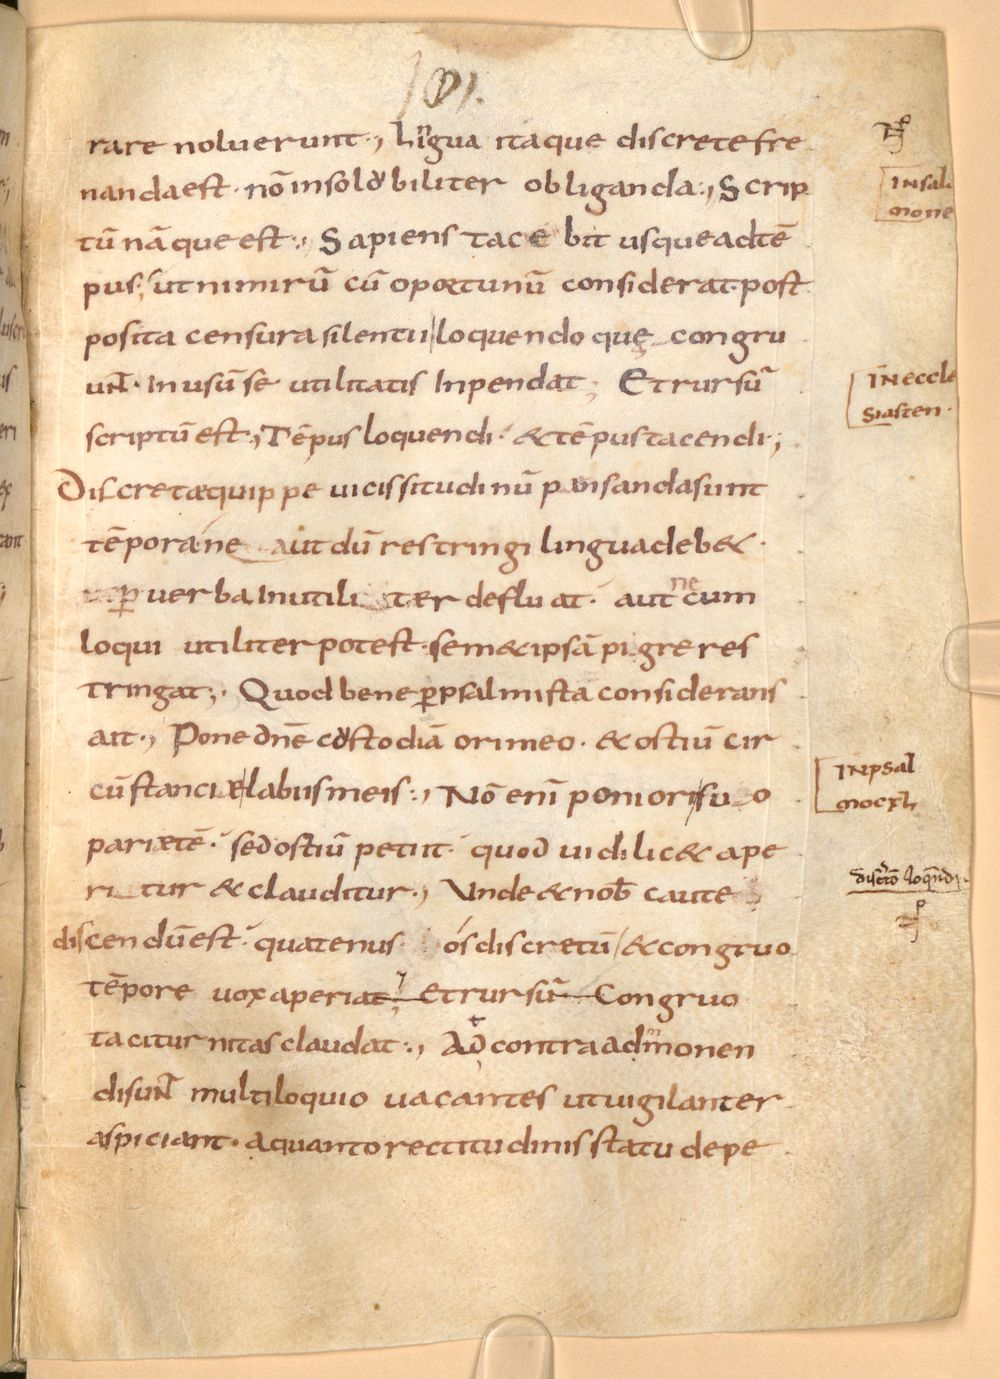 101.
rare noluerunt ., Lingua itaque discrete fre
nanda est · nō insolubiliter obliganda ., Scrip
tū nāque est ., Sapiens tacebit usque ad tē
pus; ut nimirū cū oportunū considerat · post
posita censura silentii loquendo que congru
unt · in usū se utilitatis inpendat; Et rursū
scriptū est ., Tēpus loquendi · & tēpus tacendi;
Discrete quippe vicissitudinū pensanda sunt
tēpora · ne aut dū restringi lingua deb& ·
per verba inutiliter defluat · aut ne cum
loqui utiliter potest · sem&ipsā pigre res
tringat; · Quod bene p̄ psalmista considerans
ait ., Pone dn̄e custodiā ori meo · & ostiū cir
cūstancie labiis meis ., Nō enī poni ori suo
parietē · sed ostiū petiit · quod uidilic& ape
ritur & clauditur ., Unde & nob̄ caute
discendū est · quatenus os discretū & congruo
tēpore vox aperiat; Et rursū Congruo
taciturnitas claudat ., Ad contra admonen
di sunt multiloquio vacantes ut uigilanter
aspiciant · a quanto rectitudinis statu depe
IN sal
mone
IN eccle
siasten ·
IN psal
mo cxl